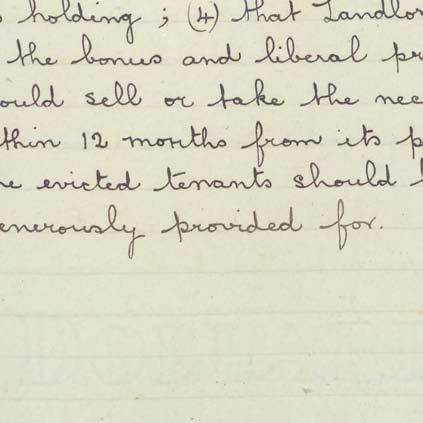 holding ; (4) that Landlor
the bonus and liberal pr
ould sell or take the nec
thin 12 months from its p
e evicted tenants should
enerously provided for.